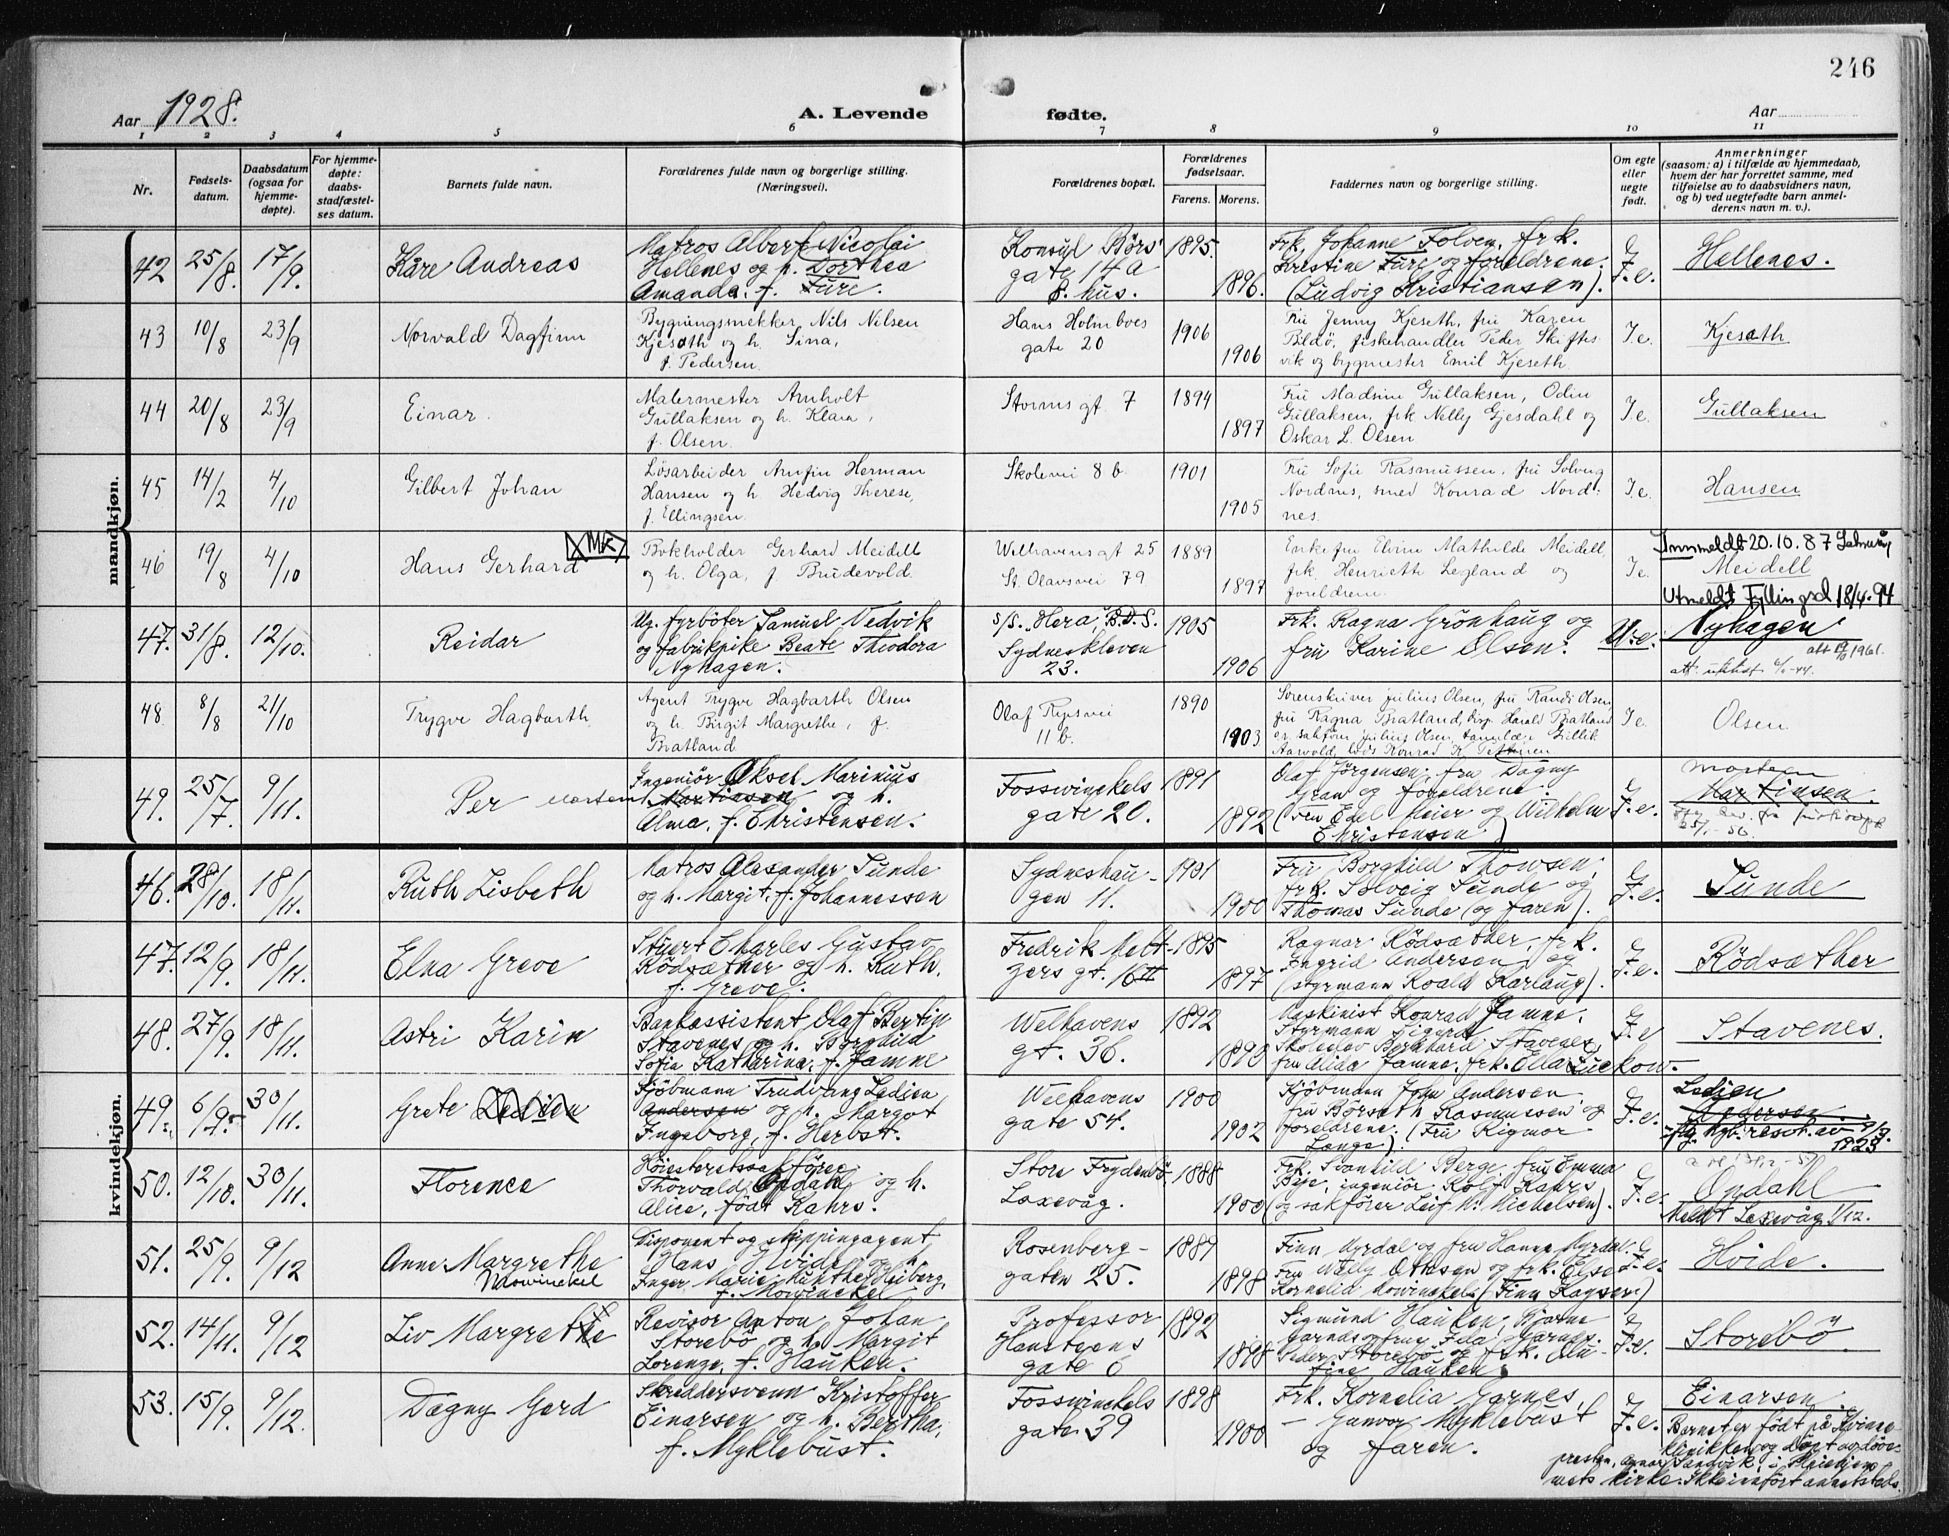 246
Aar 1928.
A. Levende fødte.
Aar
1 2 3 4 5 6 7 8 9 10 11
Nr.
Fødsels-
datum.
Daabsdatum
(ogsaa for
hjemme-
døpte).
For hjemme-
døpte:
daabs-
stadfæstel-
ses datum.
Barnets fulde navn.
Forældrenes fulde navn og borgerlige stilling.
(Næringsvei).
Forældrenes bopæl.
Forældrenes
fødselsaar.
Farens. Morens.
Faddernes navn og borgerlige stilling.
Om egte
eller
uegte
født.
Anmerkninger
(saasom: a) i tilfælde av hjemmedaab,
hvem der har forrettet samme, med
tilføielse av to daabsvidners navn,
og b) ved uegtefødte barn anmel-
derens navn m. v.).
mandkjøn.
42 25/8. 17/9. Kåre Andreas
Matros Albert Nicolai
Hellenes og h. Dorthea
Amanda, f. Fure.
Konsul Børs
gate 14a
B. hus.
1895. 1896.
Frk. Johanne Folven, frk.
Kristine Fure og foreldrene.
(Ludvig Kristiansen).
F.e.
Hellenes.
43 10/8 23/9 Norvald Dagfinn
Bygningsmekker Nils Nilsen
Kjesath og h. Sina,
f. Pedersen.
Hans Holmboes
gate 20
1906 1906
Fru Jenny Kjeseth, fru Karen
Bldö, fiskehandler Peder Skiftes
vik og bygmester Emil Kjeseth
I e.
Kjesath
44 20/8 23/9 Einar.
Malermester Arnholt
Gullaksen og h. Klara,
f. Olsen.
Storms gt 7
1894 1897
Fru Madsine Gullaksen, Odin
Gullaksen, frk Nelly Gjesdahl og
Oskar L. Olsen
I e.
Gullaksen
45 14/2 4/10 Gilbert Johan
Lösarbeider Arnfin Herman
Hansen og h. Hedvig Therese,
f. Ellingsen.
Skolevei 8 b.
1901 1905
Fru Sofie Rasmussen, fru Solveig
Nordnes, smed Konrad Nord-
nes.
I e.
Hansen
46 19/8 4/10 Hans Gerhard MK
Bokholder Gerhard Meidell
og h. Olga, f. Brudevold.
Welhavens gt 25
St. Olavsvei 79
1889 1897
Enkefru Elvine Mathilde Meidell,
frk. Henriette Legland og
foreldrene.
I e.
Innmeldt 20.10.87
Meidell
Utmeldt Fyllingsd 18/4-94
47. 31/8. 12/10. Reidar
Ug. fyrböter Samuel Vedvik
og fabrikpike Beate Theodora
Nyhagen.
s/s. "Hera", B.D.S.
Sydneskleven
23.
1905 1906
Frk. Ragna Grönhaug og
fru Karine Olsen.
U.e.
Nyhagen
48. 8/8 21/10 Trygve Hagbarth
Agent Trygve Hagbarth Olsen
og h. Birgit Margrethe, f.
Bratland.
Olaf Ryesvei
11 b.
1890 1903
Sorenskriver Julius Olsen, fru Randi Olsen,
fru Ragna Bratland, Harald Bratland
I e.
Olsen
49. 25/7. 9/11. Per Morten
Ingeniör Aksel Marinius
Martinsen og h.
Alma, f. Christensen.
Fosswinckels
gate 20.
1891 1892
Olaf Jörgensen, fru Dagny
Gran og foreldrene.
(ved Edel Meier og Wilhelm
Christensen)
F.e.
Morten
Martinsen.
kvindekjøn.
46. 28/10. 18/11. Ruth Lisbeth
Matros Alexander Sunde
og h. Margit, f. Johannessen
Sydneshau-
gen 11.
1901 1900
Fru Borghild Thowsen,
frk. Solveig Sunde og
Thomas Sunde (og faren).
F.e.
Sunde
47. 12/9. 18/11. Elna Greve
Stuert Charles Gustav
Rödsæther og h. Ruth,
f. Greve.
Fredrik Melt-
zers gt. 16 II
1895 1897
Ragnar Rödsæther, frk.
Ingrid Andersen og
(styrmann Roald Karlaug).
F.e.
Rödsæther
48. 27/9. 18/11. Astri Karin
Bankassistent Olaf Bertin
Stavenes og h. Borghild
Sofie Katharina, f. Jamne
Welhavens
gt. 36.
1892 1893
Maskinist Konrad Jamne,
Styrmann Sigurd
Skoleelev Bernhard Stavenes,
fru Alida Jamne, frk. Ella Lückow.
F.e
Stavenes.
49. 6/9. 30/11. Grete Ledien
Sjöbmann Trudvang Ledien
Andersen og h. Margot
Ingeborg, f. Herbst.
Welhavens
gate 54.
1900 1902
Kjöbmann John Andersen,
fru Borseth Rasmussen og
foreldrene. (Fru Rigmor
Lange).
F.e.
Ledien
Andersen
50. 12/10. 30/11. Florence
Höiesteretssakförer
Thorvald Opdahl og h.
Alice, födt Kahrs.
Store Frydenbö
Laxevåg.
1888 1900
Frk. Svanhild Berge, fru Emma
Beje, ingeniör Rolf Kahrs
(og sakförer Leif M. Michelsen).
F.e.
Opdahl
Meldt Laxevåg 1/12.
51. 25/9. 9/12 Anne Margrethe
Mowinckel
Disponent og skippingagent
Hans Hvide og h.
Inger Marie Munthe Heiberg,
f. Mowinckel
Rosenberg-
gaten 25.
1889 1898
Finn Myrdal og fru Hanna Myrdal.
Fru Milly Ottesen og frk. Else
Kornelia Mowinckel. (Finn Kayser)
F.e.
Hvide.
52. 14/11. 9/12 Liv Margrethe
Revisor Anton Johan
Storebö og h. Margit
Lorenze, f. Hauken.
Professor
Hansteens
gate 6
1892 1898
Sigmund Hauken, Bjarne
Garnes og fru Ida Garnes.
Peder Storebö og frk. Alu-
fine Hauken.
F.e.
Storebö
53. 15/9. 9/12. Dagny Gerd
Skreddersvenn Kristoffer
Einarsen og h. Bertha,
f. Myklebust.
Fosswinckels
gate 39
1898 1900
Frk. Kornelia Garnes,
— Gunvor Myklebust
og faren.
F.e.
Einarsen.
Barnet er födt på Kvinne-
klinikken og döpt av döve-
presten, Conar Sandvik, i Bleiehjem-
mets kirke. Ikke innfört annetsteds.